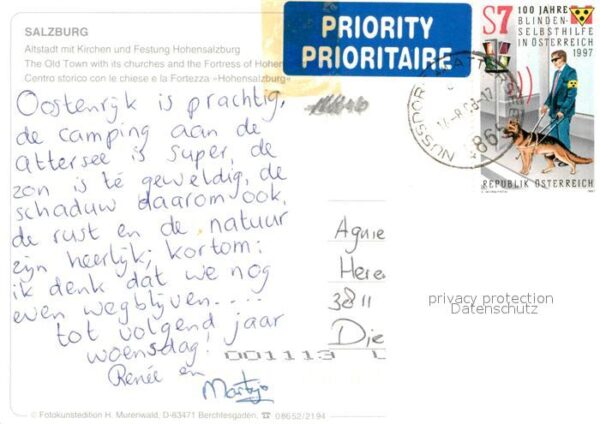 SALZBURG
Altstadt mit Kirchen und Festung Hohensalzburg
The Old Town with its churches and the Fortress of Hohen
Centro storico con le chiese e la Fortezza «Hohensalzburg»
PRIORITY
PRIORITAIRE
S7
100 JAHRE
BLINDEN-
SELBSTHILFE
IN ÖSTERREICH
1997
REPUBLIK ÖSTERREICH
NUSSDORF
863
Oostenrijk is prachtig,
de camping aan de
Attersee is super, de
zon is té geweldig, de
schaduw daarom ook,
de rust en de natuur
zijn heerlijk; kortom:
ik denk dat we nog
even wegblijven....
tot volgend jaar
woensdag!
Renée en
Martijn
Agnie
Here
3811
Die
001113 L
privacy protection
Datenschutz
© Fotokunstedition H. Murenwald, D-83471 Berchtesgaden, ☎ 08652/2194